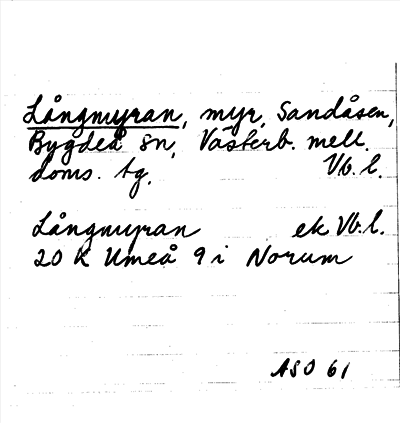 Långmyran, myr, Sandåsen,
Bygdeå sn, Västerb. mell.
doms. tg. Vb. l.
Långmyran ek Vb. l.
20 K Umeå 9 i Norum
ASO 61